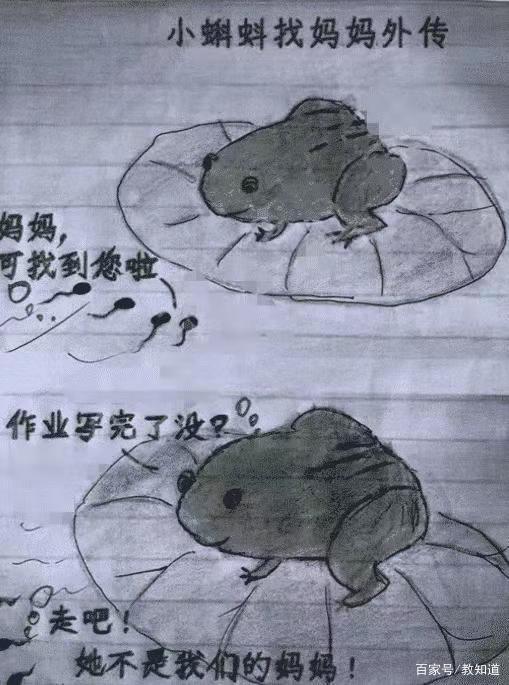 小蝌蚪找妈妈外传
妈妈,
可找到您啦
作业写完了没?
走吧!
她不是我们的妈妈!
百家号/教知道